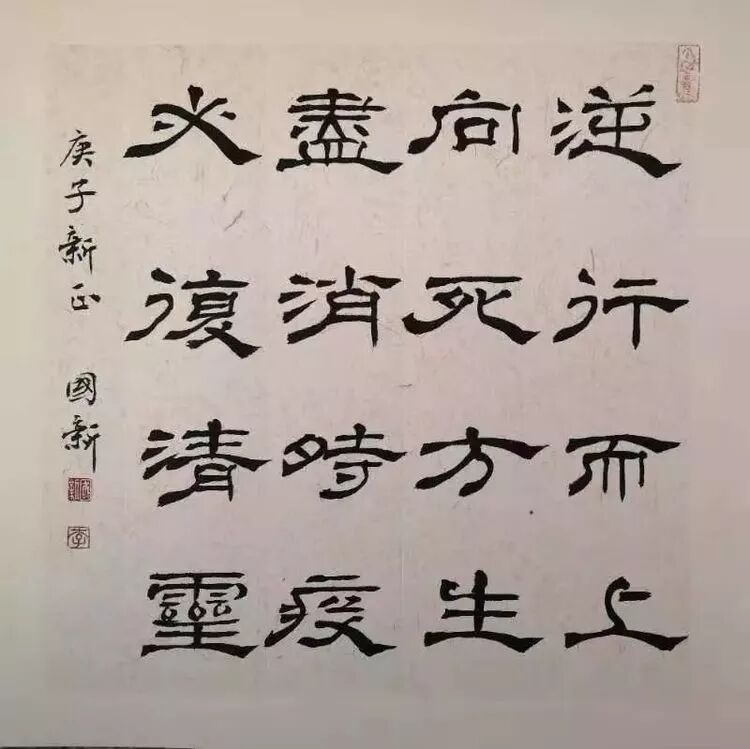 逆行而上
向死方生
盡消時疫
必復清靈
庚子新正 國新
國新
李